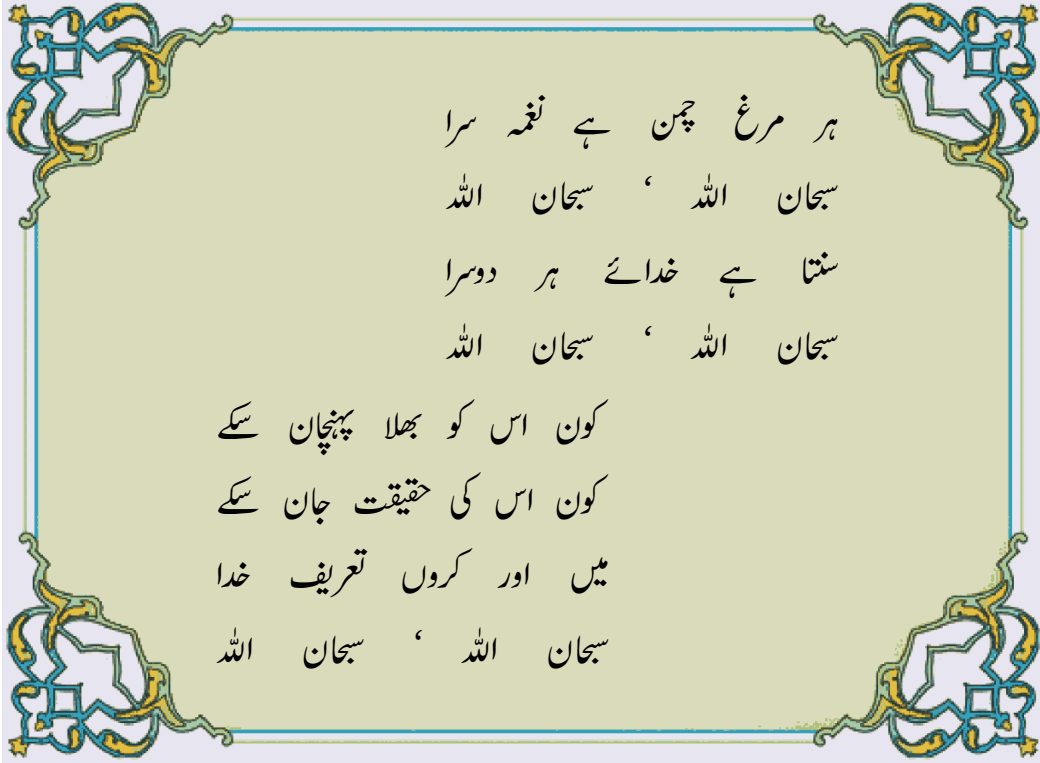 ہر مرغ چمن ہے نغمہ سرا
سبحان اللہ ‘ سبحان اللہ
سنتا ہے خدائے ہر دوسرا
سبحان اللہ ‘ سبحان اللہ
کون اس کو بھلا پہنچان سکے
کون اس کی حقیقت جان سکے
میں اور کروں تعریف خدا
سبحان اللہ ‘ سبحان اللہ